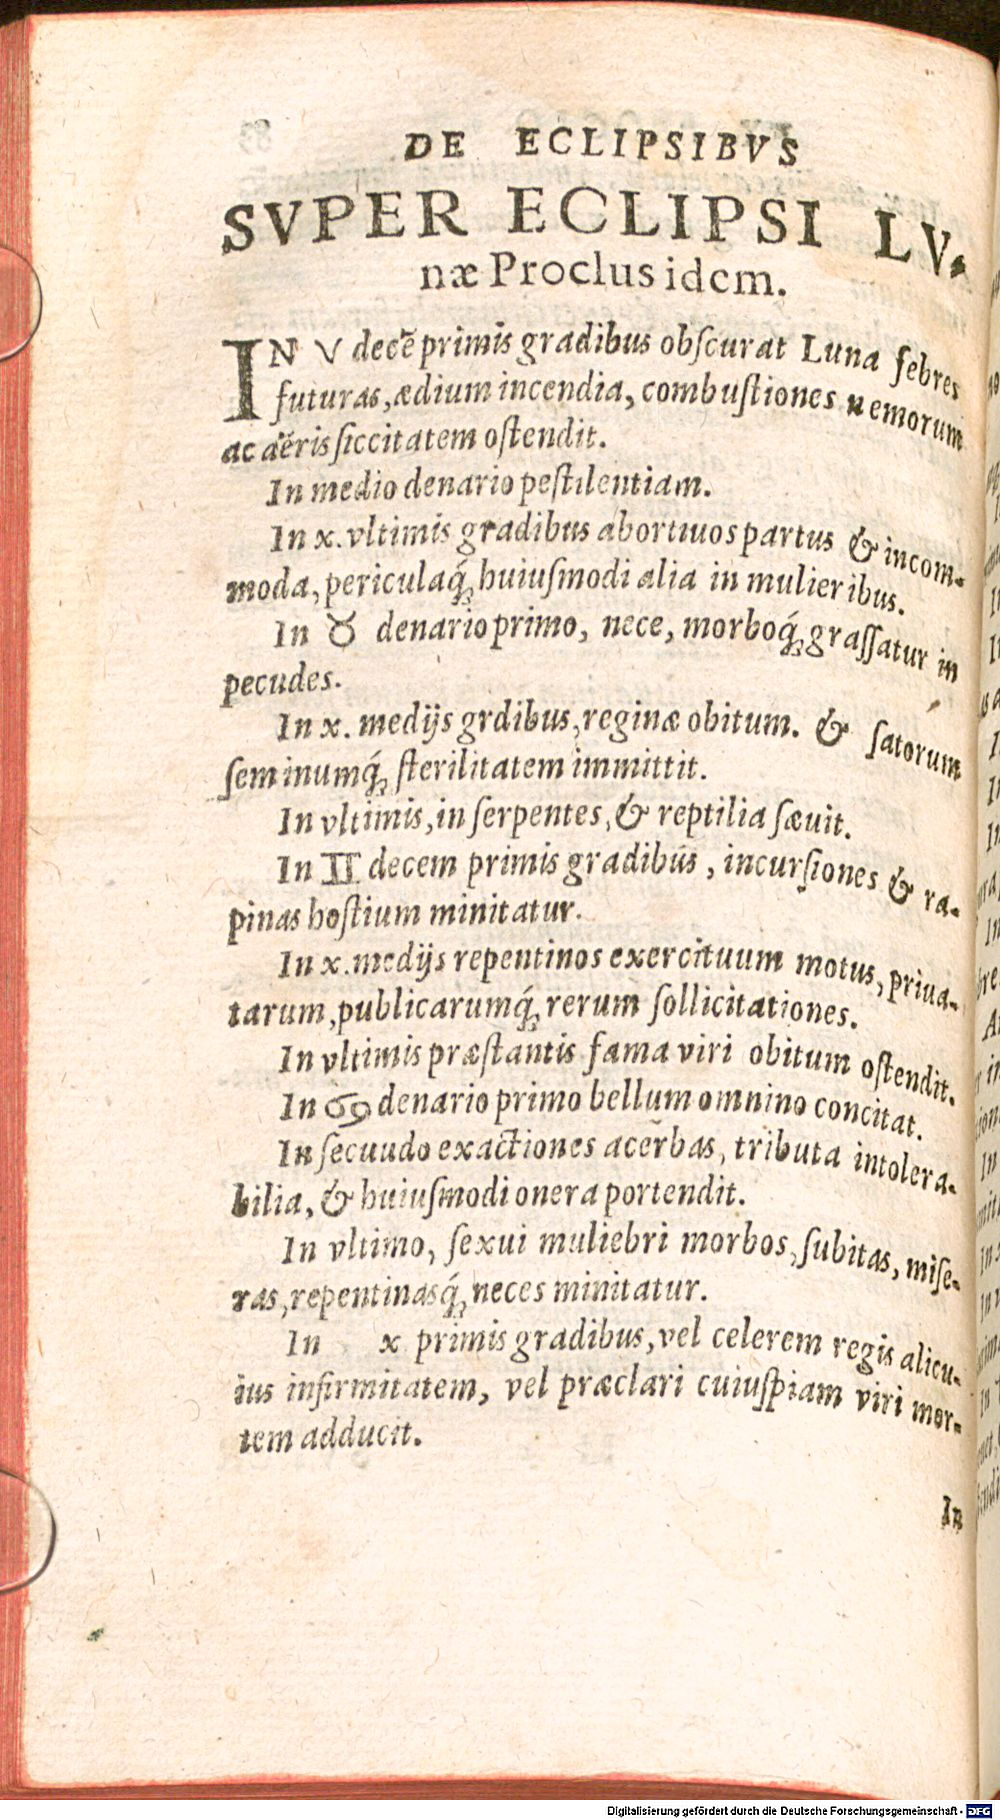 DE ECLIPSIBVS
SVPER ECLIPSI LV-
næ Proclus idem.
IN ♈ decẽ primis gradibus obſcurat Luna febres
futuras, ædium incendia, combuſtiones nemorum
ac aëris ſiccitatem oſtendit.
In medio denario peſtilentiam.
In x. vltimis gradibus abortiuos partus & incom-
moda, periculaq́; huiuſmodi alia in mulieribus.
In ♉ denario primo, nece, morboq́; graſſatur in
pecudes.
In x. medijs grdibus, reginæ obitum. & ſatorum
ſeminumq́; ſterilitatem immittit.
In vltimis, in ſerpentes, & reptilia ſæuit.
In ♊ decem primis gradibus, incurſiones & ra-
pinas hoſtium minitatur.
In x. medijs repentinos exercituum motus, priua-
tarum, publicarumq́; rerum ſollicitationes.
In vltimis præſtantis fama viri obitum oſtendit.
In ♋ denario primo bellum omnino concitat.
In ſecuudo exactiones acerbas, tributa intolera-
bilia, & huiuſmodi onera portendit.
In vltimo, ſexui muliebri morbos, ſubitas, miſe-
ras, repentinasq́; neces minitatur.
In x primis gradibus, vel celerem regis alicu-
ius infirmitatem, vel præclari cuiuſpiam viri mor-
tem adducit.
In
Digitalisierung gefördert durch die Deutsche Forschungsgemeinschaft - DFG